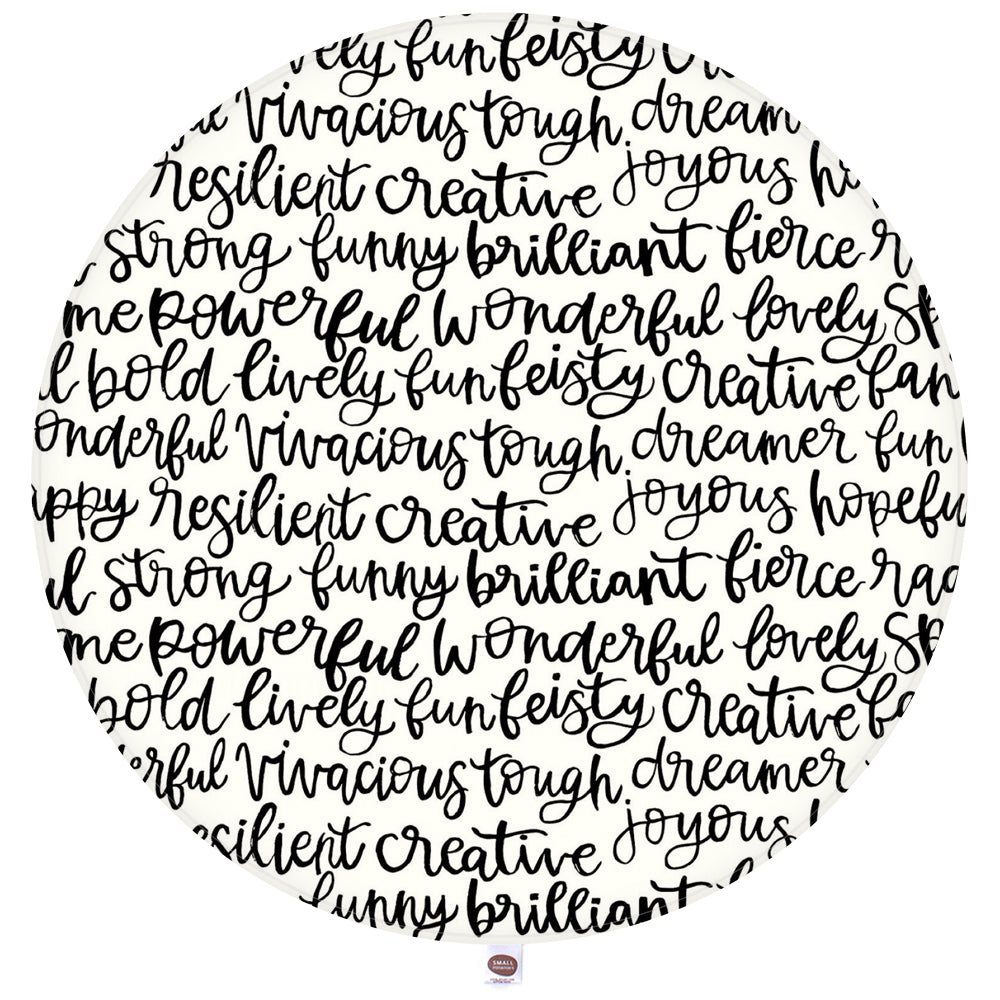 vely fun feisty
vivacious tough dreamer
resilient creative joyous
strong funny brilliant fierce
me powerful wonderful lovely sp
l bold lively fun feisty creative fan
onderful vivacious tough dreamer fun
appy resilient creative joyous hopefu
ul strong funny brilliant fierce rad
me powerful wonderful lovely sp
bold lively fun feisty creative fa
erful vivacious tough dreamer
esilient creative joyous
funny brilliant
SMALL